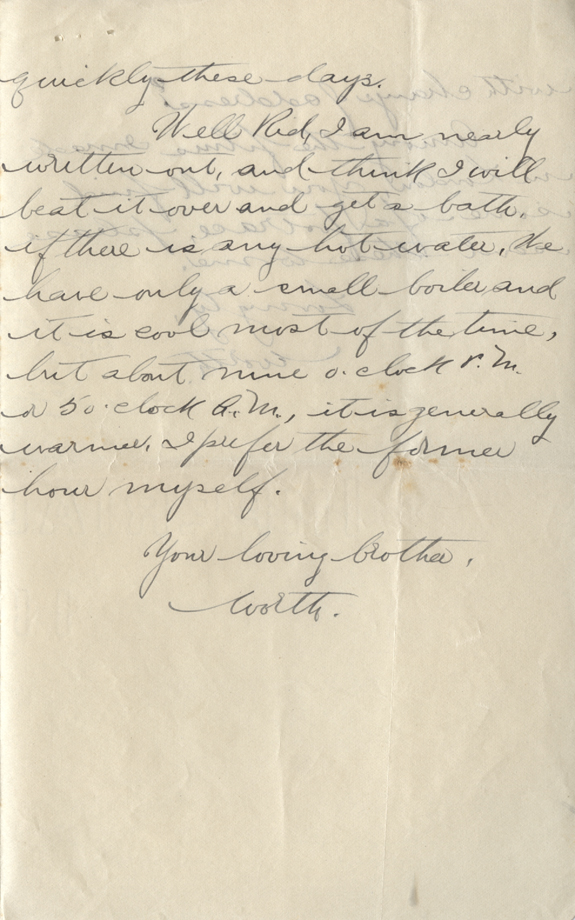 quickly these days.
Well Kid, I am nearly
written out, and think I will
beat it over and get a bath,
if there is any hot water, We
have only a small boiler and
it is cool most of the time,
but about nine o.clock P.M.
or 5 o.clock A.M., it is generally
warmer. I prefer the former
hour myself.
Your loving brother,
Worth.